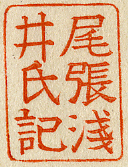 尾張淺
井氏記